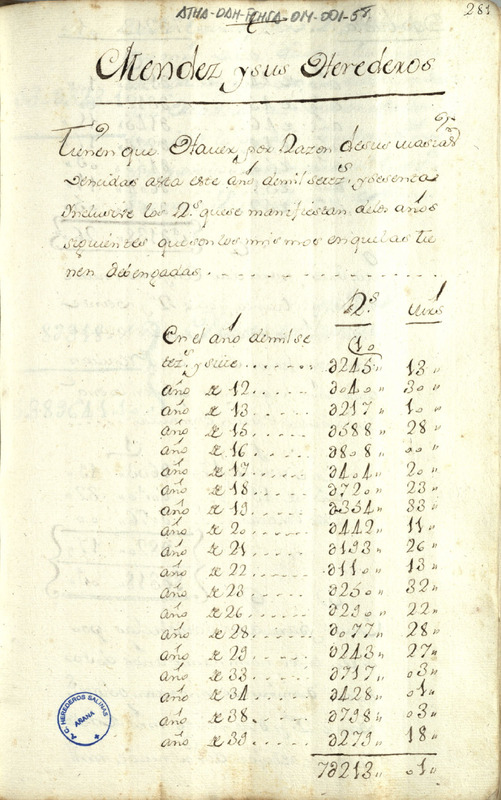 ATHA-DAH-FCHSA-014-001-58
281
Mendez y sus Herederos
Tienen que Haver por Razon de sus
vencidas asta este año de mil setez.s y sesenta
Inclusive los R.s que se manifiestan de los años
siguientes que son los mismos en que las tie
nen devengadas
R.s mrs
En el año de mil se 10
tez.s y siete 2245" 13"
año de 12 2040" 30"
año de 13 2217" 10"
año de 15 2588" 28"
año de 16 2808" 00"
año de 17 2404" 20"
año de 18 2720" 23"
año de 19 2354" 33"
año de 20 2442" 11"
año de 21 2193" 26"
año de 22 2110" 13"
año de 23 2250" 32"
año de 26 2290" 22"
año de 28 2077" 28"
año de 29 2243" 27"
año de 33 2717" 03"
año de 34 2428" 01"
año de 38 2798" 03"
año de 39 2279" 18"
72213" 01"
A.C. HEREDEROS SALINAS
AÑANA